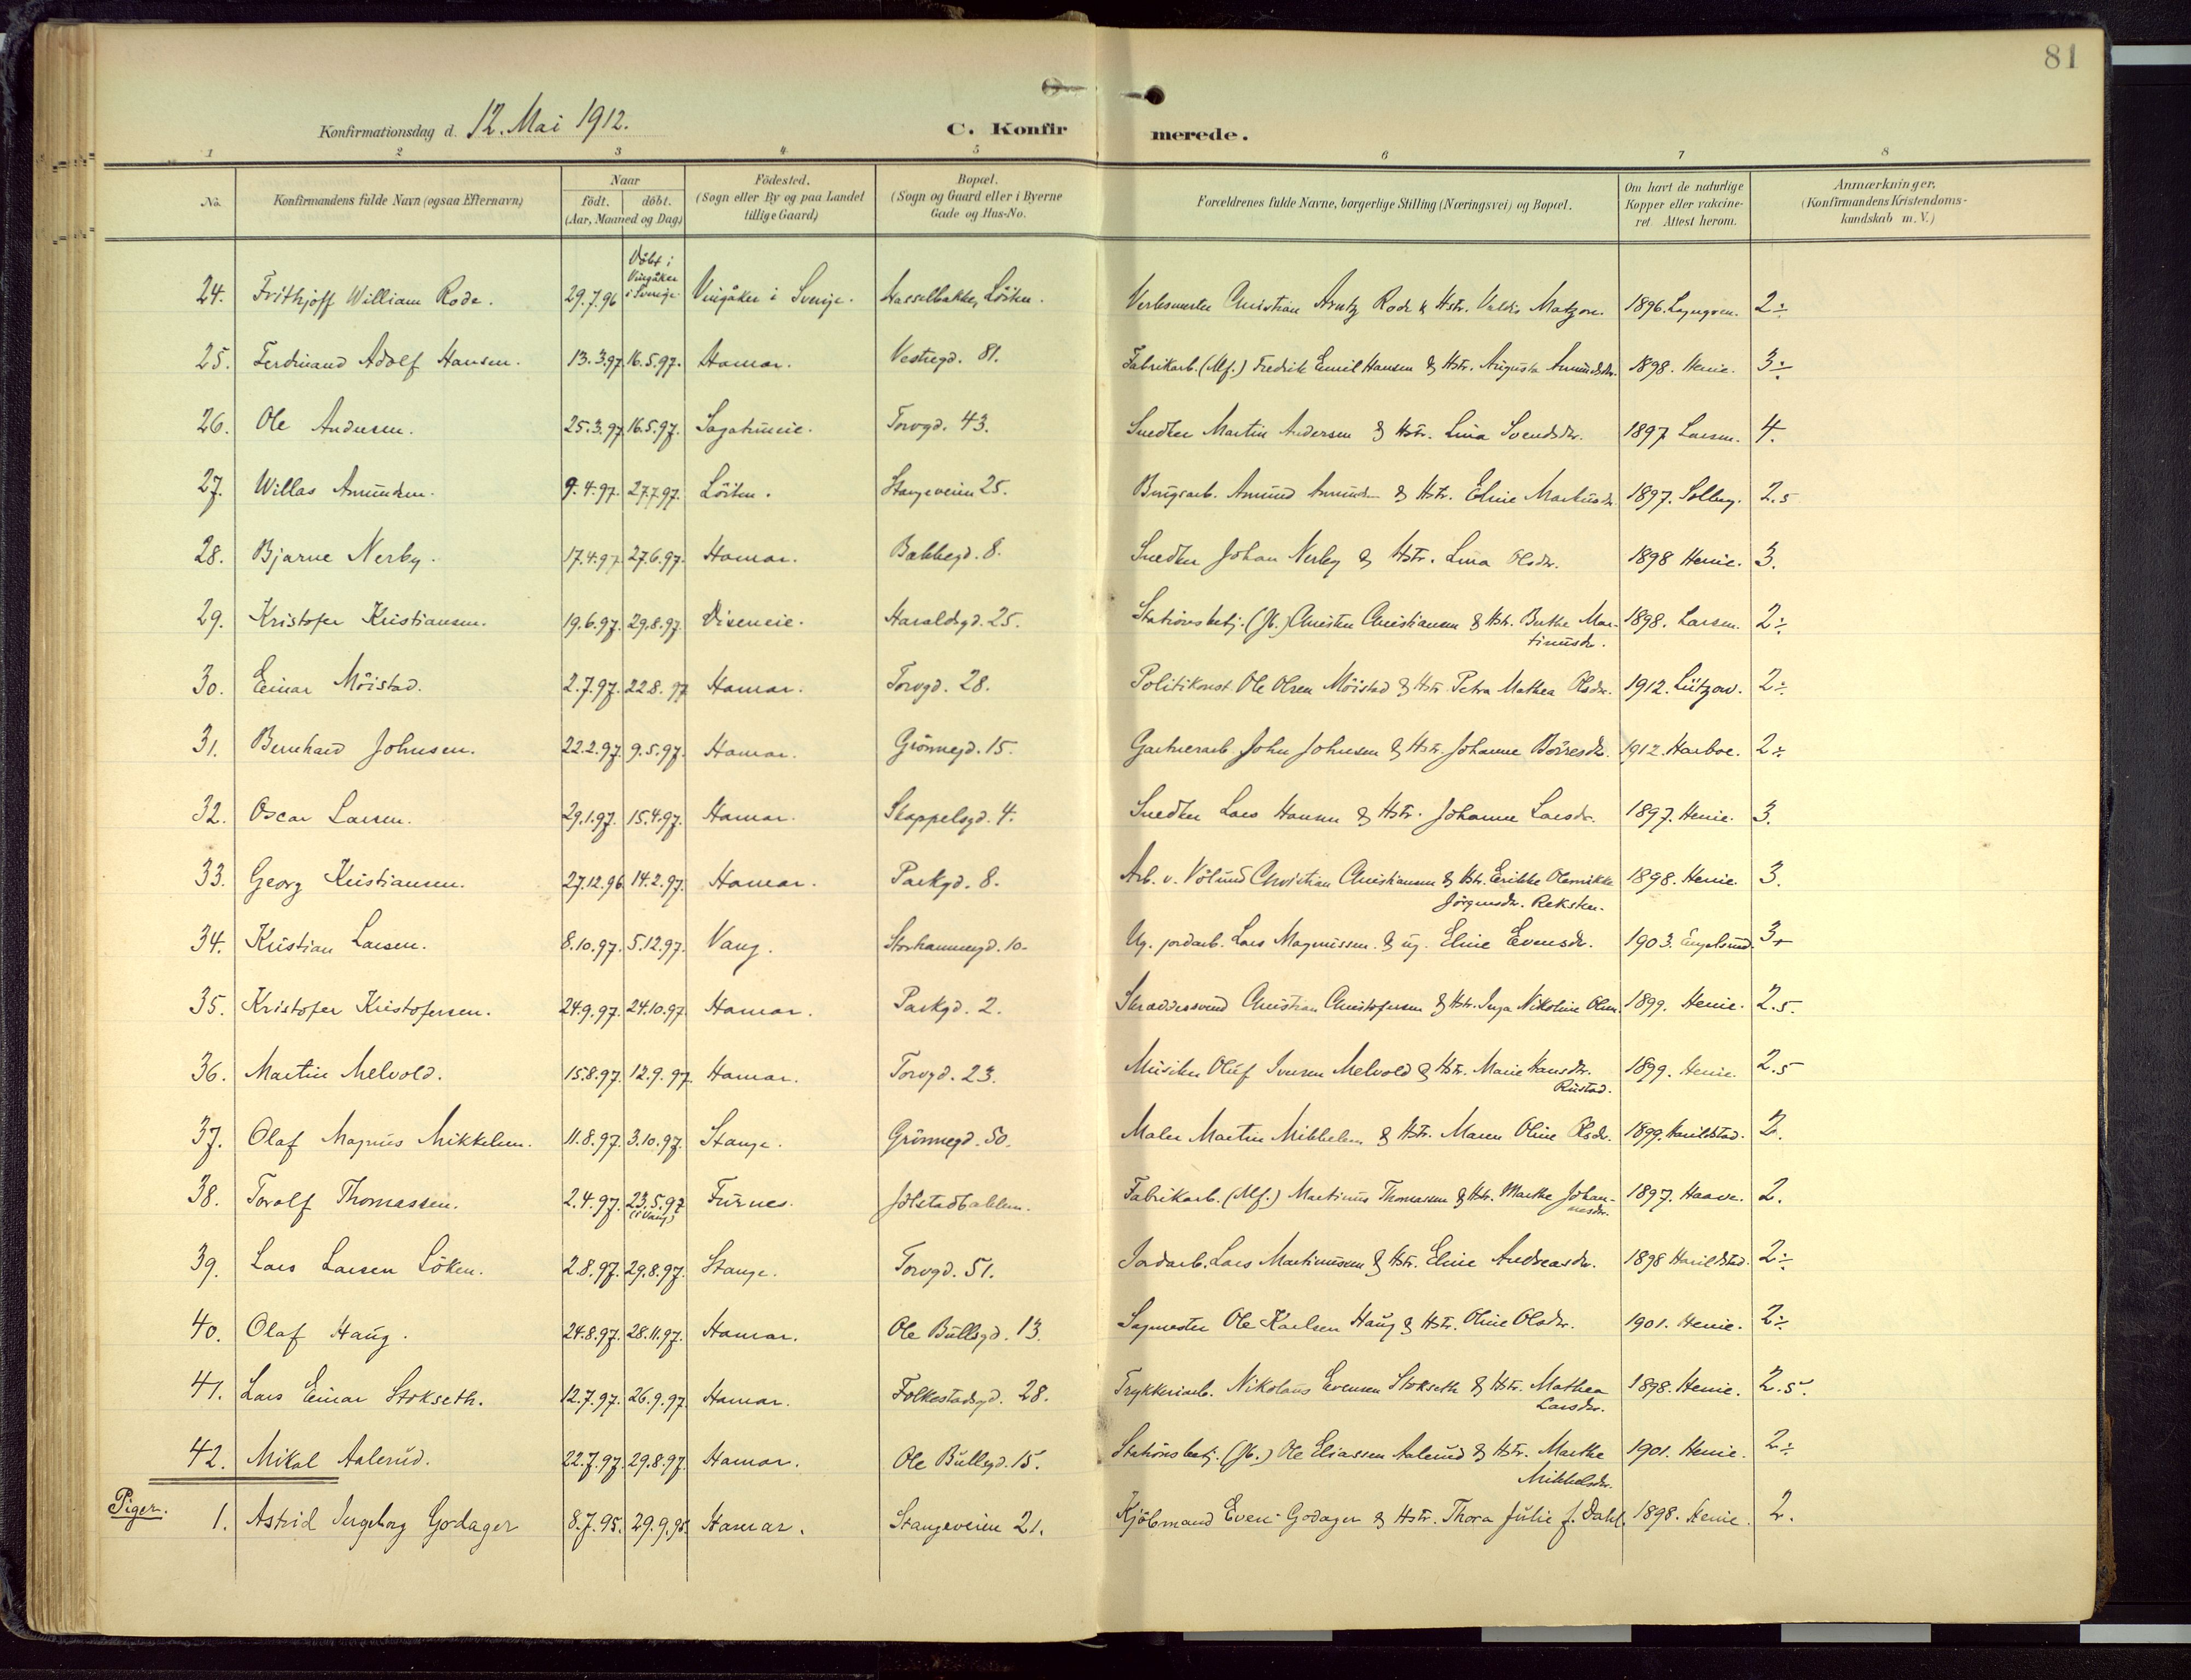 81
Konfirmationsdag d. 12. Mai 1912.
C. Konfirmerede.
1 2 3 4 5 6 7 8
No. Konfirmandens fulde Navn (ogsaa Efternavn) Naar født. døbt. (Aar, Maaned og Dag) Fødested. (Sogn eller By og paa Landet tillige Gaard) Bopæl. (Sogn og Gaard eller i Byerne Gade og Hus-No. Forældrenes fulde Navne, borgerlige Stilling (Næringsvei) og Bopæl. Om havt de naturlige Kopper eller vakcineret. Attest herom. Anmærkninger, (Konfirmandens Kristendomskundskab m. V.)
24. Frithjoff William Rode. 29.7.96 Döbt i Vingåker i Sverige Vingåker i Sverige. Hasselbakken, Löiten. Christian Arntz Rode & Hstr. Valdis Matzon. 1896. 2÷
25. Ferdinand Adolf Hansen. 13.3.97. 16.5.97. Hamar. Vestregd. 81. Fabrikarb. (Mf.) Fredrik Emil Hansen & Hstr. Augusta Amundsdr. 1898. Henie. 3÷
26. Ole Andersen. 25.3.97. 16.5.97. Sagatuneie. Torvgd. 43. Snedker Martin Andersen & Hstr. Lina Svendsdr. 1897 Larsen. 4.
27. Willas Amundsen. 9.4.97. 27.7.97. Löiten. Stangeveien 25. Brugsarb. Amund Amundsen & Hstr. Eline Markusdr. 1897. Solberg. 2.5
28. Bjarne Nerby. 17.4.97. 27.6.97. Hamar. Bakkegd. 8. Snedker Johan Nerby & Hstr. Lina Olsdr. 1898 Henie. 3.
29. Kristofer Kristiansen. 19.6.97. 29.8.97. Diseneie. Haraldsgd. 25. Stationsbetj. (Jb.) Christen Christiansen & Hstr. Berthe Mar- 1898. Larsen. 2÷
tinusdr.
30. Einar Möistad. 2.7.97. 22.8.97 Hamar. Torvgd. 28. Politikonst. Ole Olsen Möistad & Hstr. Petra Mathea Olsdr. 1912. Lützow. 2÷
31. Bernhard Johnsen. 22.2.97. 9.5.97. Hamar. Grönnegd. 15. Gartnerarb. John Johnsen & Hstr. Johanne Börresdr. 1912. Harboe. 2÷
32. Oscar Larsen. 29.1.97. 15.4.97. Hamar. Skappelsgd. 4. Snedker Lars Hansen & Hstr. Johanne Larsdr. 1897. Henie. 3.
33. Georg Kristiansen. 27.12.96. 14.2.97. Hamar. Parkgd. 8. Arb. v. Völund Christian Christiansen & Hstr. Erikke Olemikke 1898. Henie. 3.
Jörgensdr. Reksten.
34. Kristian Larsen. 8.10.97. 5.12.97. Vang. Storhamargd. 10. Ug. jordarb. Lars Magnussen & ug. Eline Evensdr. 1903. Engelsund. 3+
35. Kristofer Kristofersen. 24.9.97. 24.10.97 Hamar. Parkgd. 2. Skræddersvend Christian Christofersen & Hstr. Inga Nikoline Olsen. 1899. Henie. 2.5.
36. Martin Melvold. 15.8.97. 12.9.97. Hamar. Torvgd. 23. Musiker Oluf Iversen Melvold & Hstr. Marie Hansdr. 1899. Henie. 2.5
Rustad.
37. Olaf Magnus Mikkelsen. 11.8.97. 3.10.97. Stange. Grönnegd. 50. Maler Martin Mikkelsen & Hstr. Maren Oline Olsdr. 1899. Harildstad. 2.
38. Torolf Thomassen. 2.4.97. 23.5.97 (i Vang) Furnes. Jölstadbakken. Fabrikarb. (Mf.) Martinus Thomassen & Hstr. Marthe Johan- 1897. Haave. 2.
nesdr.
39. Lars Larsen Löken. 2.8.97. 29.8.97. Stange. Torvgd. 51. Jordarb. Lars Martinussen & Hstr. Eline Andreasdr. 1898 Harildstad. 2÷
40. Olaf Haug. 24.8.97. 28.11.97. Hamar. Ole Bullsgd. 13. Sagmester Ole Karlsen Haug & Hstr. Oline Olsdr. 1901. Henie. 2÷
41. Lars Einar Stokseth. 12.7.97. 26.9.97. Hamar. Folkestadsgd. 28. Trykkeriarb. Nikolaus Evensen Stokseth & Hstr. Mathea 1898. Henie. 2.5.
Larsdr.
42. Mikal Aalerud. 22.7.97. 29.8.97. Hamar. Ole Bullsgd. 15. Stationsbetj. (Jb.) Ole Eliassen Aalerud & Hstr. Marthe 1901. Henie. 2÷
Mikkelsdr.
Piger.
1. Astrid Ingeborg Godager 8.7.95. 29.9.95. Hamar. Stangeveien 21. Kjöbmand Even Godager & Hstr. Thora Julie f. Dahl. 1898. Henie. 2.